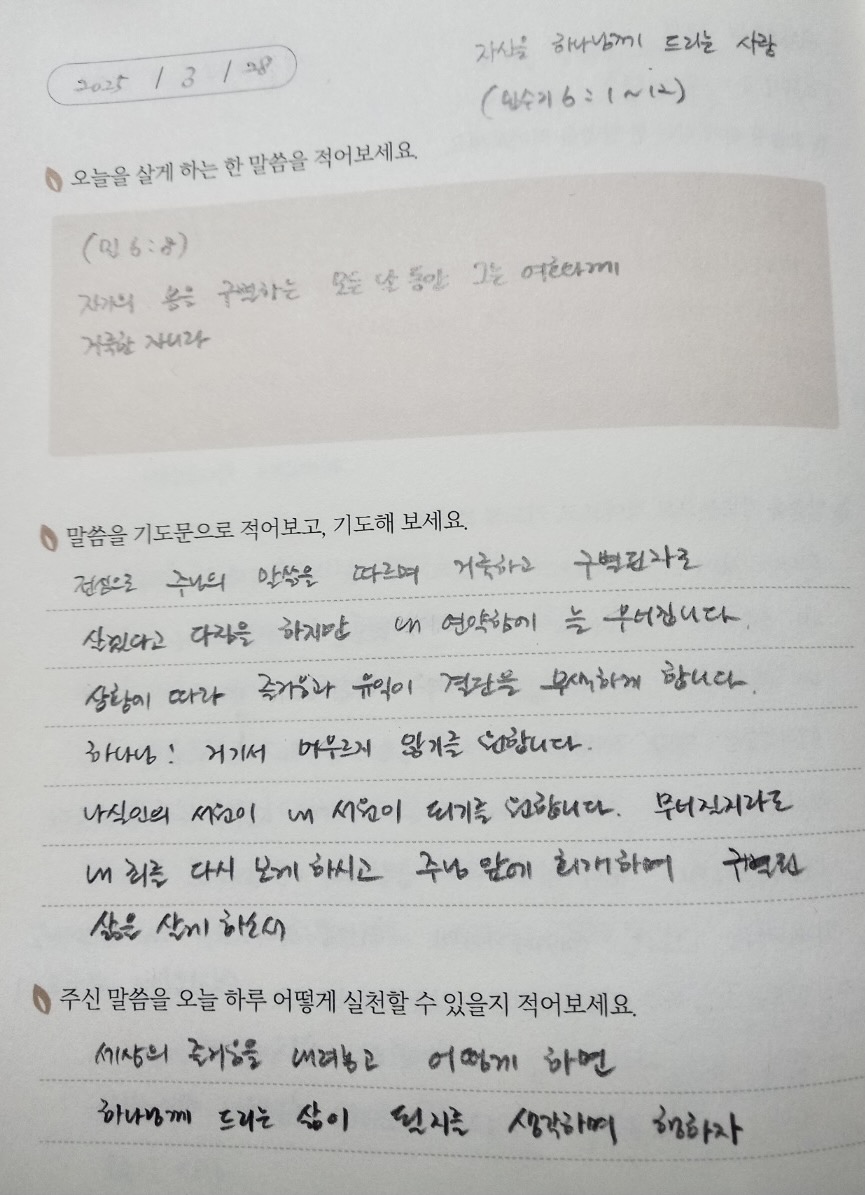 2025 / 3 / 28
자신을 하나님께 드리는 사람
(민수기 6 : 1 ~ 12)
오늘을 살게 하는 한 말씀을 적어보세요.
(민 6 : 8)
자기의 몸을 구별하는 모든 날 동안 그는 여호와께
거룩한 자니라
말씀을 기도문으로 적어보고, 기도해 보세요.
전심으로 주님의 말씀을 따르며 거룩하고 구별된자로
살겠다고 다짐을 하지만 내 연약함에 늘 무너집니다.
상황에 따라 즐거움과 유익이 결단을 무색하게 합니다.
하나님! 거기서 머무르지 않기를 원합니다.
나실인의 서원이 내 서원이 되기를 원합니다. 무너질지라도
내 죄를 다시 보게 하시고 주님 앞에 회개하며 구별된
삶을 살게 하소서
주신 말씀을 오늘 하루 어떻게 실천할 수 있을지 적어보세요.
세상의 즐거움을 내려놓고 어떻게 하면
하나님께 드리는 삶이 될지를 생각하며 행하자